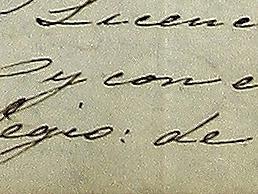 Licenc
y con e
legio: de